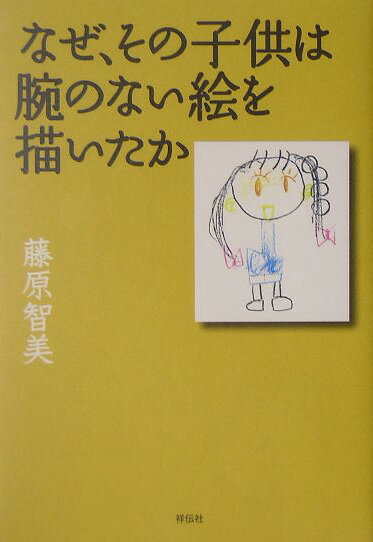 なぜ、その子供は
腕のない絵を
描いたか
藤原智美
祥伝社